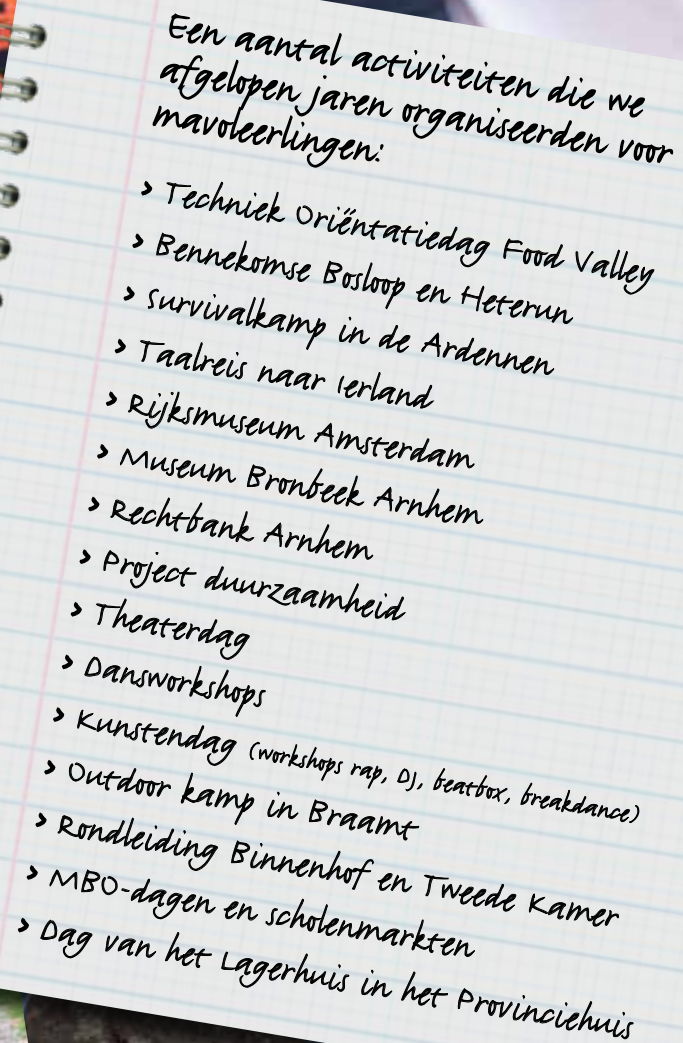 Een aantal activiteiten die we
afgelopen jaren organiseerden voor
mavoleerlingen:
> Techniek Oriëntatiedag Food Valley
> Bennekomse Bosloop en Heterun
> Survivalkamp in de Ardennen
> Taalreis naar Ierland
> Rijksmuseum Amsterdam
> Museum Bronbeek Arnhem
> Rechtbank Arnhem
> Project duurzaamheid
> Theaterdag
> Dansworkshops
> Kunstendag (workshops rap, DJ, beatbox, breakdance)
> Outdoor kamp in Braamt
> Rondleiding Binnenhof en Tweede Kamer
> MBO-dagen en scholenmarkten
> Dag van het Lagerhuis in het Provinciehuis